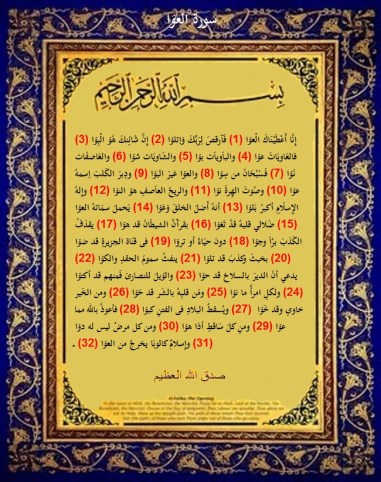 سورة العوّا
بسم الله الرحمن الرحيم
إنَّا أعْطَيْنَاكَ الْعوَا (1) فَأرقصْ لِرَبِّكَ وَاتلوَا (2) إنَّ شَانِئكَ هُوَ (3)
فالعَاويَاتُ عوَا (4) والبأويَات بوَا (5) والشَاويَات شوَا (6) والعَاصفَات
نوَا (7) فَسُبْحَانُ من سوَا (8) والعوَا غيرَ البوَا (9) وديرَ الكَلبَ إسمهُ
عوَا (10) وصَوْتُ الهرةُ نوَا (11) والريحُ العَاصفِ هوَ النوَا (12) وإلهُ
الإسلَامِ أكبرُ بَلوَا (13) أنهُ أضلَ الخلقَ وَغوَا (14) يَحملُ سمَاتهُ العوَا
(15) ضَلَالي قلبهُ قدْ تَغوَا (16) بقرآنْ الشيطَانُ قد هوَا (17) يقذفُ
الكَذبَ برّاً وجوَا (18) دونَ حيَاءٌ أو تروَا (19) فى قنَاة الجزيرةِ قد ضوَا
(20) بخبثِ وكذبَ قد تلوَا (21) ينفثُ سمومَ الحقدِ والكوَا (22)
يدعى أنَ الديرَ بالسلَاح قد حوَا (23) والوَيلُ للنصَارىَ فَمنهم قد أكتوَا
(24) ولكلِ امرأً ما نوَا (25) ومَن قلبهُ بالشرِ قد خوَا (26) ومن الخَيرِ
خاوى وقد خَوَا (27) ويُسقطُ البلَادِ فى الفتنِ كبوَا (28) فأعوذُ بالله مما
عوَا (29) ومن كلَ سَاقطِ أذَا هوَا (30) ومن كلِ مرضٌ ليس له دوَا
(31) وإسلَامُ يخرجُ من العوَا (32) .
صدق الله العظيم
Al-Fatiha (The Opening)